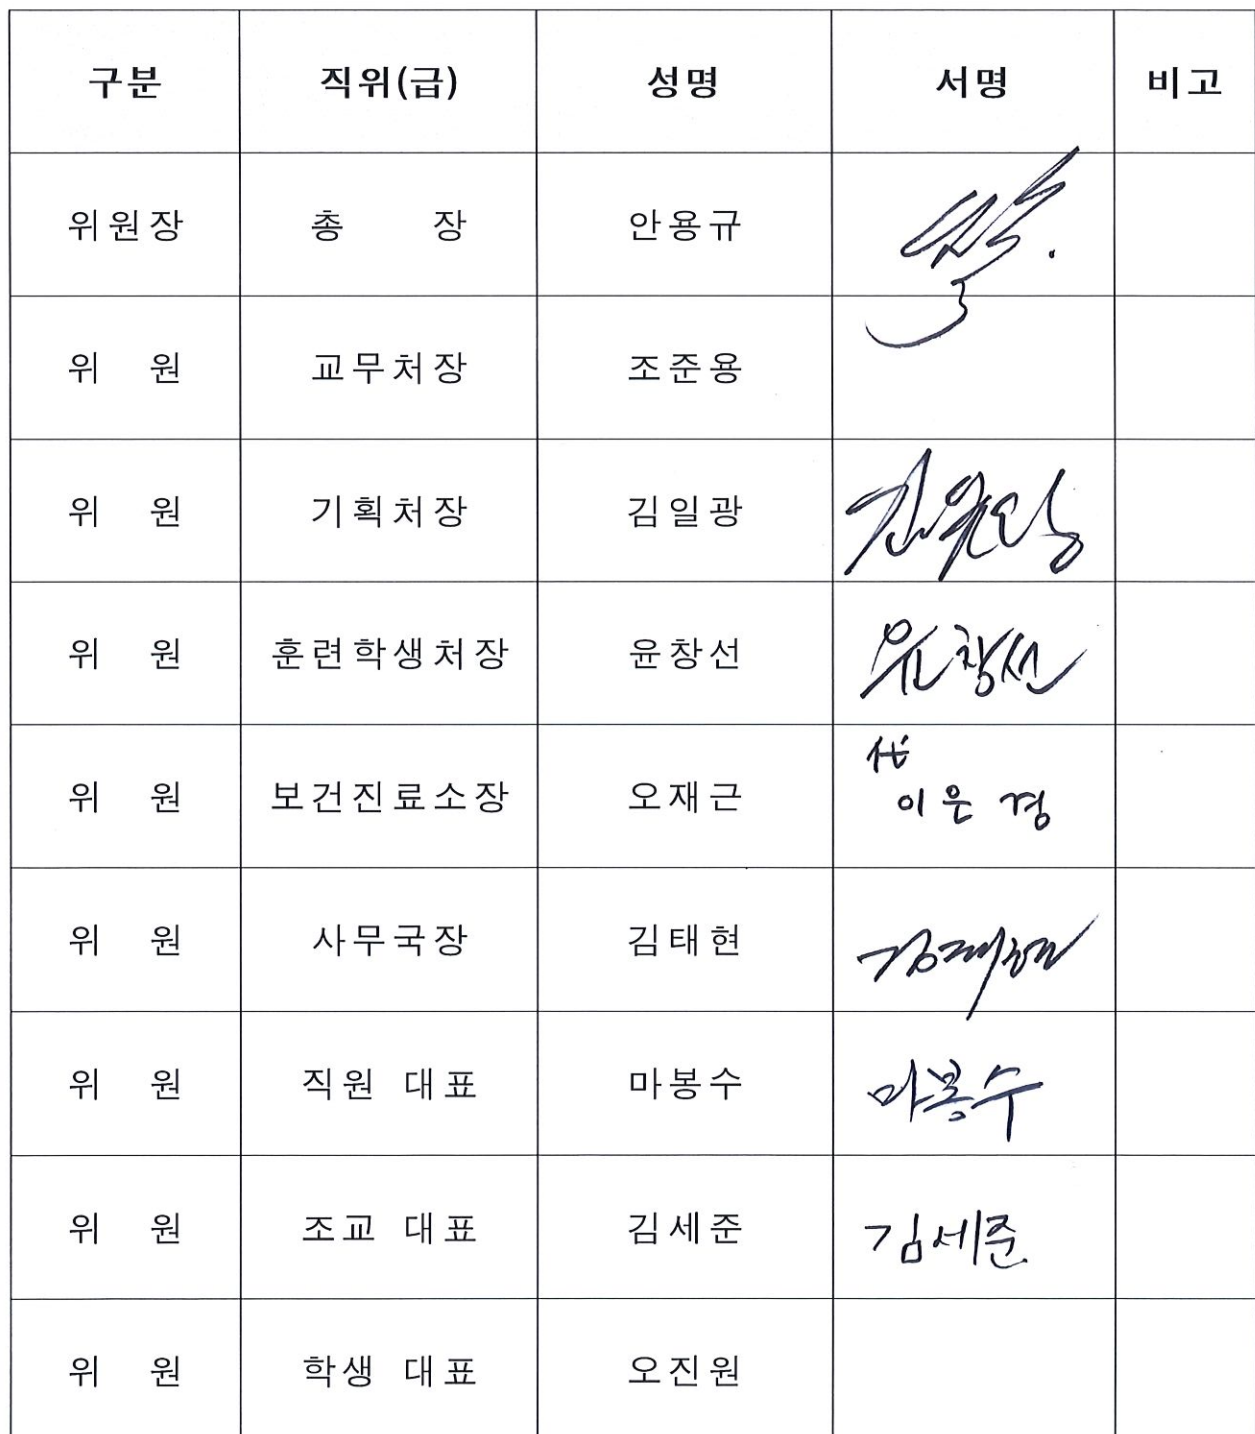 구분 직위(급) 성명 서명 비고
위원장 총 장 안용규
위 원 교무처장 조준용
위 원 기획처장 김일광
위 원 훈련학생처장 윤창선 윤창선
위 원 보건진료소장 오재근 代 이은경
위 원 사무국장 김태현 김태현
위 원 직원 대표 마봉수 마봉수
위 원 조교 대표 김세준 김세준
위 원 학생 대표 오진원